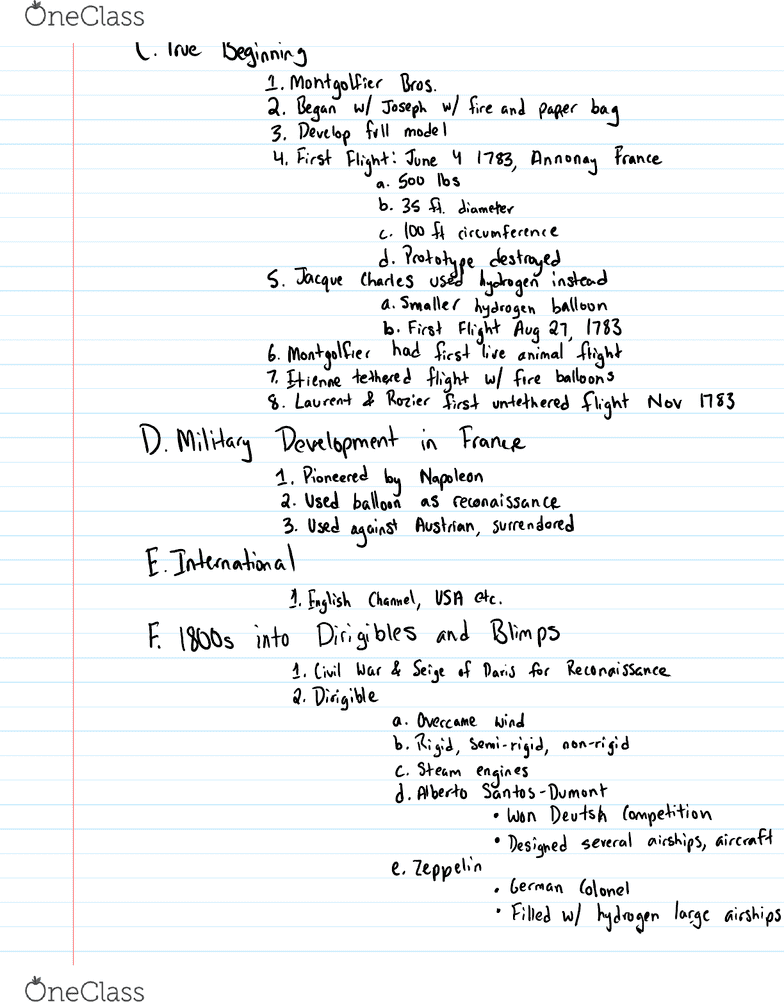 OneClass
C. True Beginning
1. Montgolfier Bros.
2. Began w/ Joseph w/ fire and paper bag
3. Develop full model
4. First Flight: June 4 1783, Annonay France
a. 500 lbs
b. 35 ft. diameter
c. 100 ft circumference
d. Prototype destroyed
5. Jacque Charles used hydrogen instead
a. Smaller hydrogen balloon
b. First Flight Aug 27, 1783
6. Montgolfier had first live animal flight
7. Etienne tethered flight w/ fire balloons
8. Laurent & Rozier first untethered flight Nov 1783
D. Military Development in France
1. Pioneered by Napoleon
2. Used balloon as reconaissance
3. Used against Austrian, surrendored
E. International
1. English Channel, USA etc.
F. 1800s into Dirigibles and Blimps
1. Civil War & Seige of Paris for Reconaissance
2. Dirigible
a. Overcame wind
b. Rigid, semi-rigid, non-rigid
c. Steam engines
d. Alberto Santos-Dumont
• Won Deutsh Competition
• Designed several airships, aircraft
e. Zeppelin
• German Colonel
• Filled w/ hydrogen large airships
OneClass